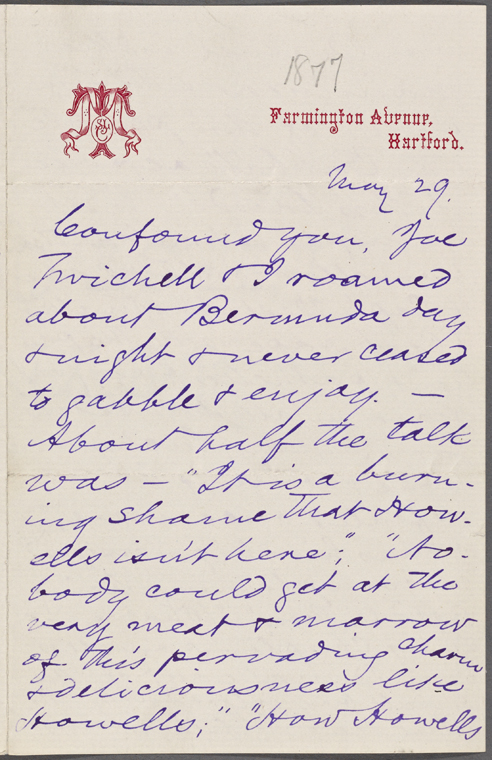 1877
Farmington Avenue,
Hartford.
May 29.
Confound you, Joe
Twichell & I roamed
about Bermuda day
& night & never ceased
to gabble & enjoy. —
About half the talk
was — "It is a burn-
ing shame that How-
ells isn't here"; "No-
body could get at the
very meat & marrow
of this pervading charm
& deliciousness like
Howells;" "How Howells